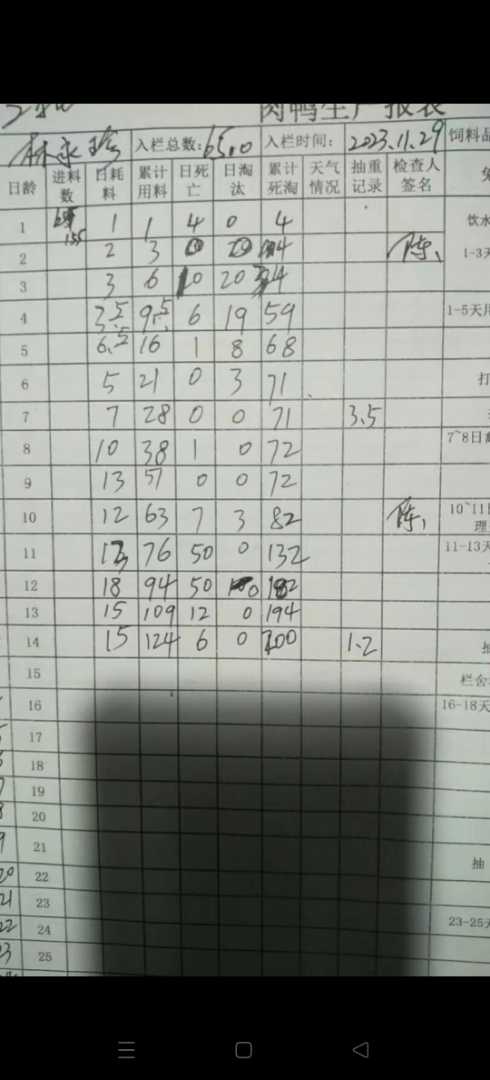 肉鸭生产报表
林永珍 入栏总数:6500 入栏时间: 2023.11.29 饲料品
日龄 进料数 日耗料 累计用料 日死亡 日淘汰 累计死淘 天气情况 抽重记录 检查人签名 免
1 155 1 1 4 0 4 饮水
2 2 3 陈、 1-3天
3 3 6 10 20
4 3.5 9.5 6 19 59 1-5天
5 6.5 16 1 8 68
6 5 21 0 3 71 打
7 7 28 0 0 71 3.5
8 10 38 1 0 72 7~8日龄
9 13 51 0 0 72
10 12 63 7 3 82 陈、 10~11日 理
11 13 76 50 0 132 11-13天
12 18 94 50 0 182
13 15 109 12 0 194
14 15 124 6 0 200 1.2 抽
15 栏舍
16 16-18天
17
18
19
20
21 抽
20 22
21 23
22 24 23-25天
23 25